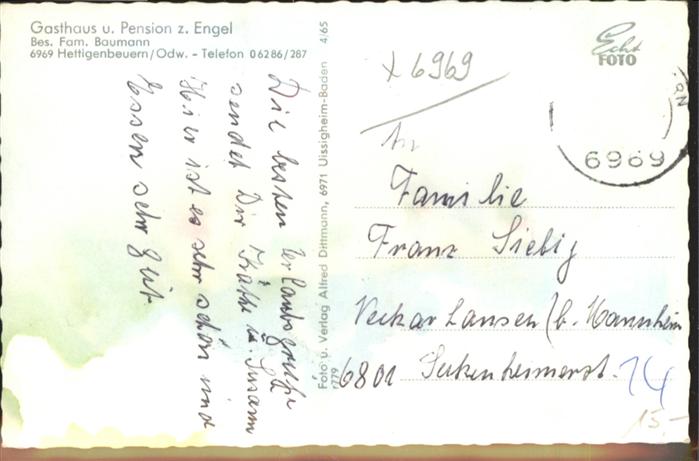 Gasthaus u. Pension z. Engel
Bes. Fam. Baumann
6969 Hettigenbeuern/Odw. - Telefon 06286/287
Die besten Urlaubsgrüße
sendet Dir Käthe u. Susann
Hier ist es sehr schön und
Essen sehr gut
Foto u. Verlag Alfred Dittmann, 6971 Uissigheim-Baden 4/65
r779
x 6969
Echt
FOTO
6969
An
Familie
Franz Siebig
Neckarhausen (b. Mannheim
6801 Seckenheimerst. 74
15.-